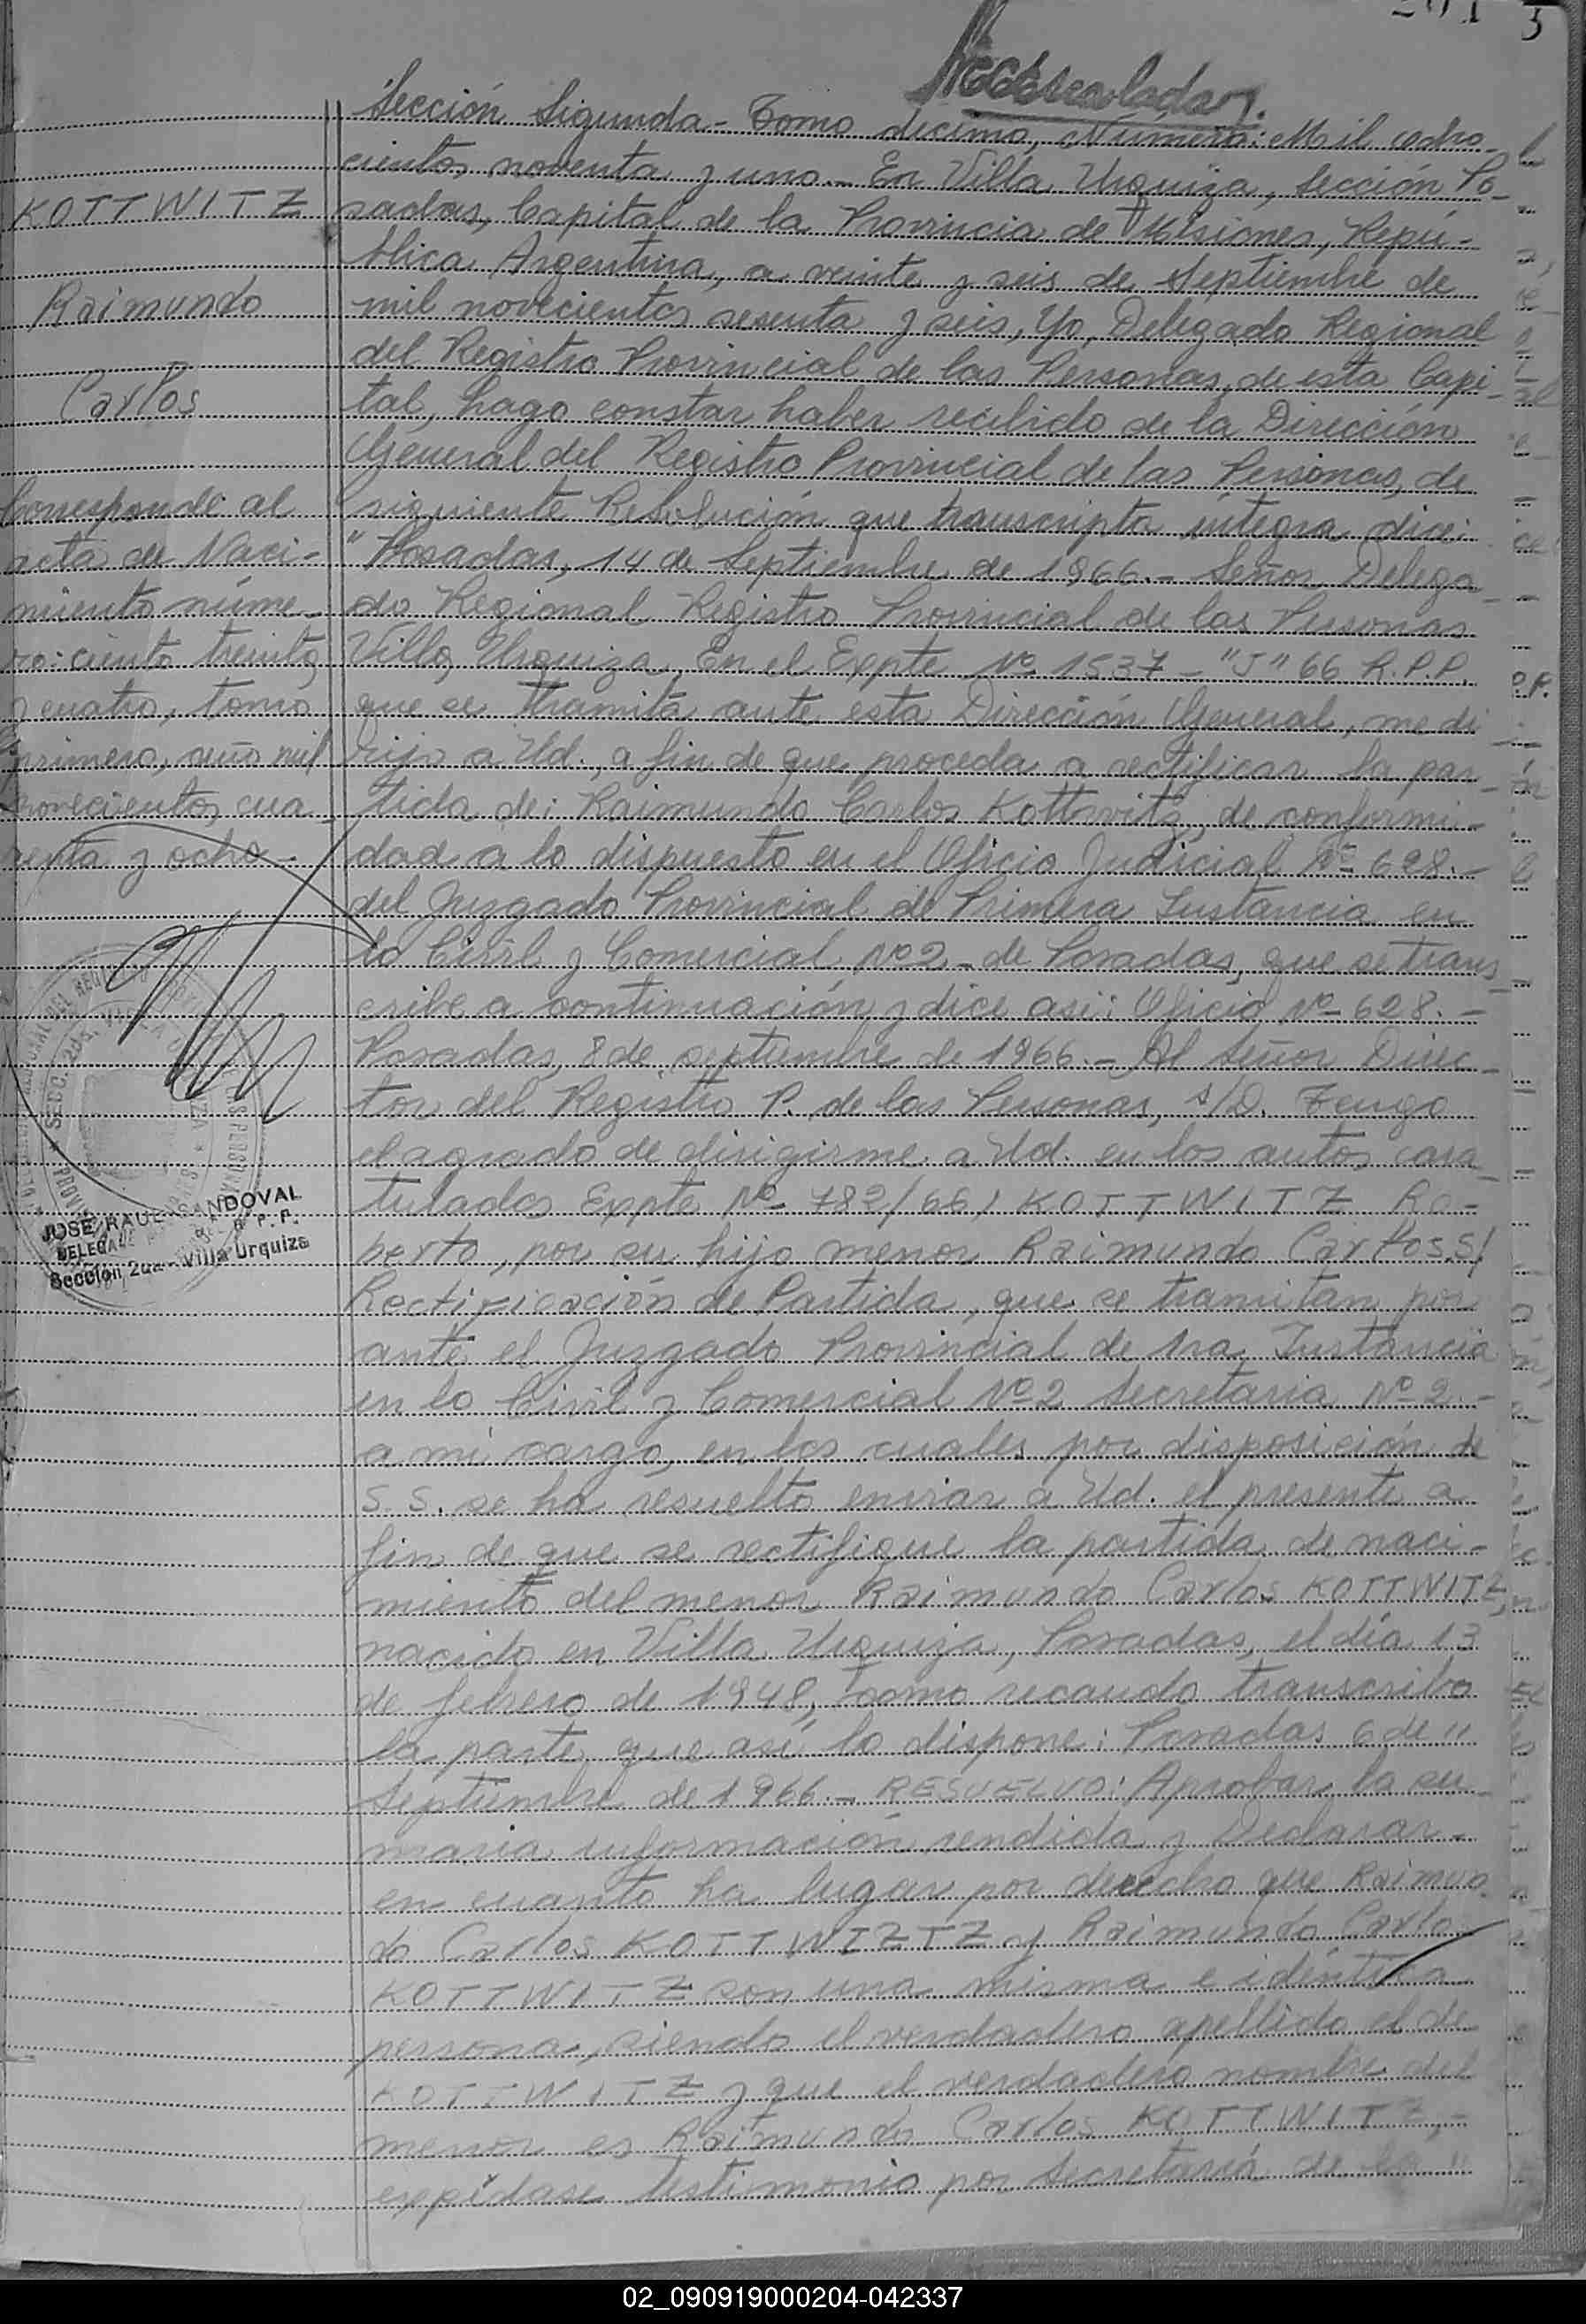 201 5
Sección Segunda - Tomo décimo, Número: Mil cuatro-
cientos noventa y uno.- En Villa Urquiza, Sección Po-
sadas, Capital de la Provincia de Misiones, Repú-
blica Argentina, a veinte y seis de Septiembre de
mil novecientos sesenta y seis, Yo, Delegado Regional
del Registro Provincial de las Personas, de esta Capi-
tal, hago constar haber recibido de la Dirección
General del Registro Provincial de las Personas, de
siguiente Resolución que transcripta íntegra dice:
"Posadas, 14 de Septiembre de 1966.- Señor Delega-
do Regional Registro Provincial de las Personas
Villa Urquiza. En el Expte Nº 1537 - "J" 66 R.P.P.
que se tramita ante esta Dirección General, me di-
rijo a Ud., a fin de que proceda a rectificar la par-
tida de: Raimundo Carlos Kottwitz, de conformi-
dad a lo dispuesto en el Oficio Judicial Nº 628.-
del Juzgado Provincial de Primera Instancia en
lo Civil y Comercial Nº 2 - de Posadas, que se trans-
cribe a continuación y dice asi: Oficio Nº 628.-
Posadas, 8 de septiembre de 1966.- Al Señor Direc-
tor del Registro P. de las Personas, s/D. Tengo
el agrado de dirigirme a Ud. en los autos cara-
tulados Expte Nº 782/66, KOTTWITZ Ro-
berto, por su hijo menor Raimundo Carlos S/
Rectificación de Partida, que se tramitan por
ante el Juzgado Provincial de 1ra, Instancia
en lo Civil y Comercial Nº 2 Secretaria Nº 2.-
a mi cargo, en los cuales por disposición de
S.S. se ha resuelto enviar a Ud. el presente a
fin de que se rectifique la partida de naci-
miento del menor Raimundo Carlos KOTTWITZ,
nacido en Villa Urquiza, Posadas, el día 13
de febrero de 1948, Como recaudo transcribo
la parte que así lo dispone: Posadas 6 de "
Septiembre de 1966.- RESUELVO: Aprobar la su-
maria información rendida y Declarar-
en cuanto ha lugar por derecho que Raimun-
do Carlos KOTTWIZTZ y Raimundo Carlo
KOTTWITZ son una misma e idéntica
persona, siendo el verdadero apellido el de
KOTTWITZ y que el verdadero nombre del
menor es Raimundo Carlos KOTTWITZ,-
expídase testimonio por Secretaría de la "
KOTTWITZ
Raimundo
Carlos
Corresponde al
acta de Naci-
miento núme-
ro: ciento treinta
y cuatro, tomo
primero, año mil
novecientos cua
renta y ocho.
JOSE RAUL SANDOVAL
DELEGADO R.P.P.
Sección 2da - Villa Urquiza
02_090919000204-042337